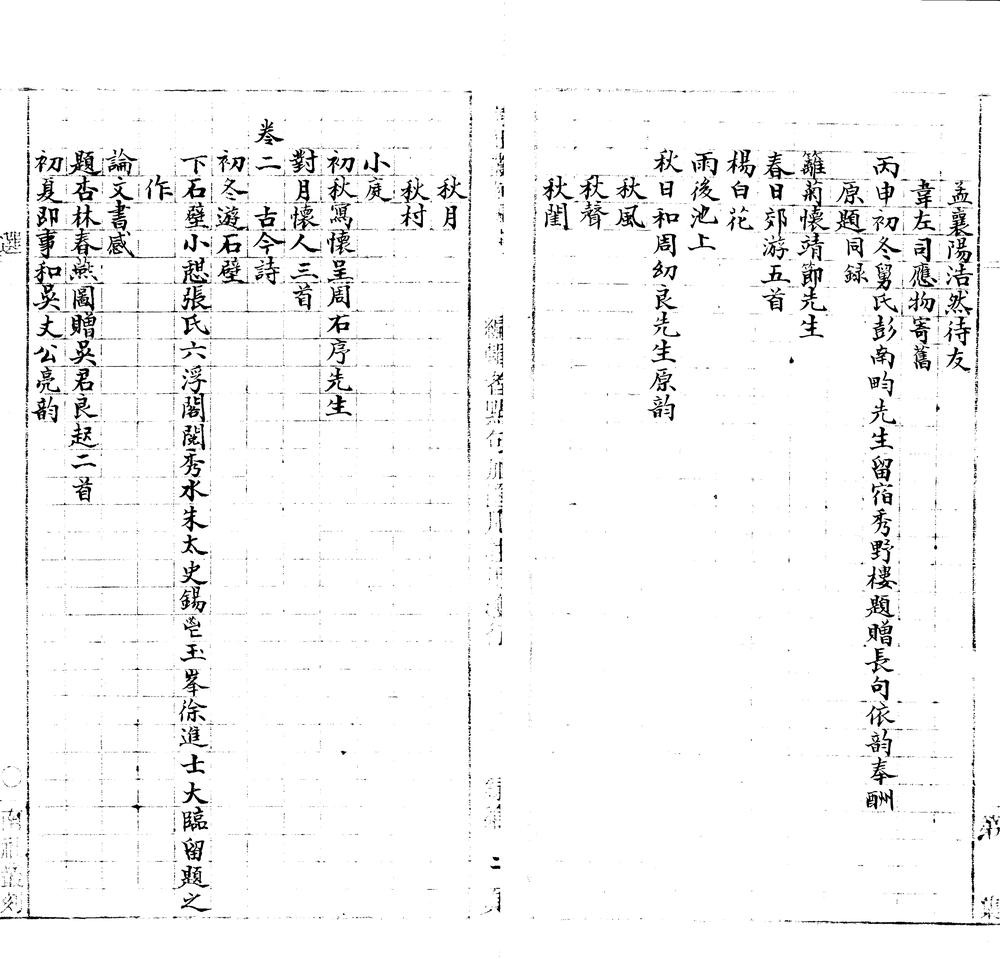 孟襄陽浩然待友
韋左司應物寄舊
丙申初冬舅氏彭南畇先生留宿秀野樓題贈長句依韵奉酬
原題同録
籬菊懷靖節先生
春日郊游五首
楊白花
雨後池上
秋日和周幼良先生原韵
秋風
秋聲
秋閨
秋月
秋村
小庭
初秋寫懷呈周石序先生
對月懷人三首
卷二　古今詩
初冬遊石壁
下石壁小憩張氏六浮閣閱秀水朱太史錫鬯玉峯徐進士大臨留題之
作
論文書感
題杏林春燕圖贈吳君良起二首
初夏即事和吳丈公亮韵
選
南社叢刻
第
集